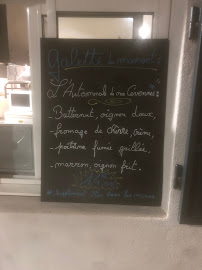 galette du moment :
L'Automnale d'nos Cévennes :
- Butternut, oignon doux,
- fromage de chèvre, crème,
- poitrine fumée grillée,
- marron, oignon frit.